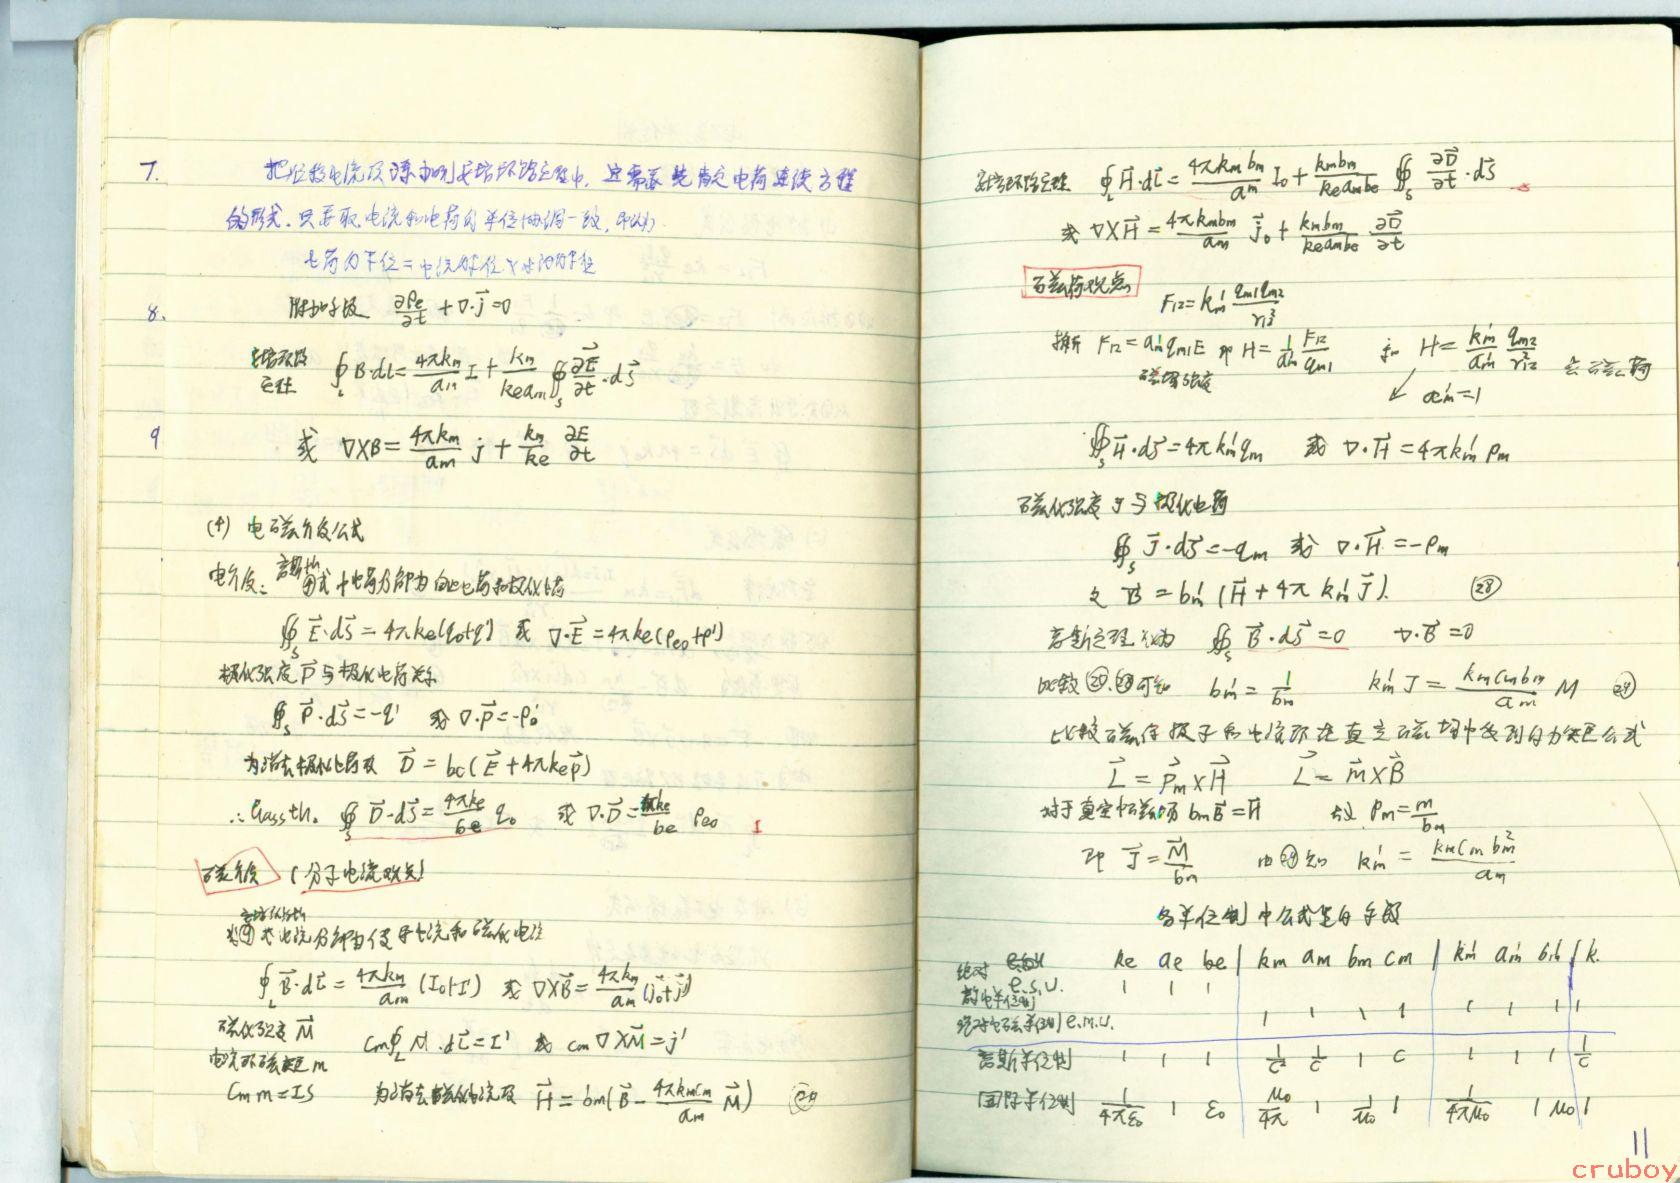 7. 把位移电流及添加到安培环路定理中, 这需要先肯定电荷连续方程
的形式. 只要取电流和电荷的单位协调一致, 即认为
电荷的单位=电流单位×时间单位
8. 附加手段 ∂ρe/∂t + ∇·j⃗ = 0
安培环路定律 ∮_L B·dl = 4πkm/am I + km/(ke am) ∯_S ∂E⃗/∂t · dS⃗
9 或 ∇×B = 4πkm/am j + km/ke ∂E/∂t
(4) 电磁介质公式
电介质: 高斯th 式中电荷分解为自由电荷和极化电荷
∯_S E⃗·dS⃗ = 4πke(q0+q') 或 ∇·E⃗ = 4πke(ρe0+ρ')
极化强度P⃗与极化电荷关系
∯_S P⃗·dS⃗ = -q' 或 ∇·P⃗ = -ρe'
为消去极化电荷及 D⃗ = be(E⃗+4πkeP⃗)
∴ Gass th. ∯_S D⃗·dS⃗ = 4πke/be q0 或 ∇·D⃗ = 4πke/be ρe0 I
磁介质 (分子电流观点)
安培环路th
式中电流分解为传导电流和磁化电流
∮_L B⃗·dl⃗ = 4πkm/am (I0+I') 或 ∇×B⃗ = 4πkm/am (j⃗0+j⃗')
磁化强度 M⃗ cm∮_L M⃗·dl⃗ = I' 或 cm∇×M⃗ = j'
电流环磁矩 m
Cm m = IS 为消去磁化电流及 H⃗ = bm(B⃗ - 4πkmcm/am M⃗)
安培环路定理 ∮_L H⃗·dl⃗ = 4πkmbm/am I0 + kmbm/(keambe) ∯_S ∂D⃗/∂t · dS⃗
或 ∇×H⃗ = 4πkmbm/am j⃗0 + kmbm/(keambe) ∂D⃗/∂t
磁荷观点
F12 = km' qm1qm2/r12²
推断 F12 = am'qm1E 即 H = 1/am' F12/qm1 则 H = km'/am' qm2/r12² 点磁荷
磁场强度 am'=1
∯_S H⃗·dS⃗ = 4πkm'qm 或 ∇·H⃗ = 4πkm'ρm
磁化强度 J 与极化电荷
∯_S J⃗·dS⃗ = -qm 或 ∇·H⃗ = -ρm
又 B⃗ = bm'(H⃗+4πkm'J⃗). ㉘
高斯定理仍为 ∯_S B⃗·dS⃗ = 0 ∇·B⃗ = 0
比较 可知 bm' = 1/bm km'J = kmcmbm/am M ㉙
比较磁偶极子和电流环在真空磁场中受到的力矩公式
L⃗ = P⃗m×H⃗ L⃗ = m⃗×B⃗
对于真空中磁场 bmB⃗ = H⃗ 故 Pm = m/bm
即 J⃗ = M⃗/bm 由㉙知 km' = kmcmbm²/am
各单位制中公式里的手段
ke ae be | km am bm cm | km' am' bm' | k.
绝对静电单位制 e.s.u. 1 1 1
绝对电磁单位制 e.m.u. 1 1 1 1 1 1 1 1
高斯单位制 1 1 1 1/c² 1/c 1 c 1 1 1 1/c
国际单位制 1/4πε0 1 ε0 μ0/4π 1 1/μ0 1 1/4πμ0 1 μ0 1
11
cruboy